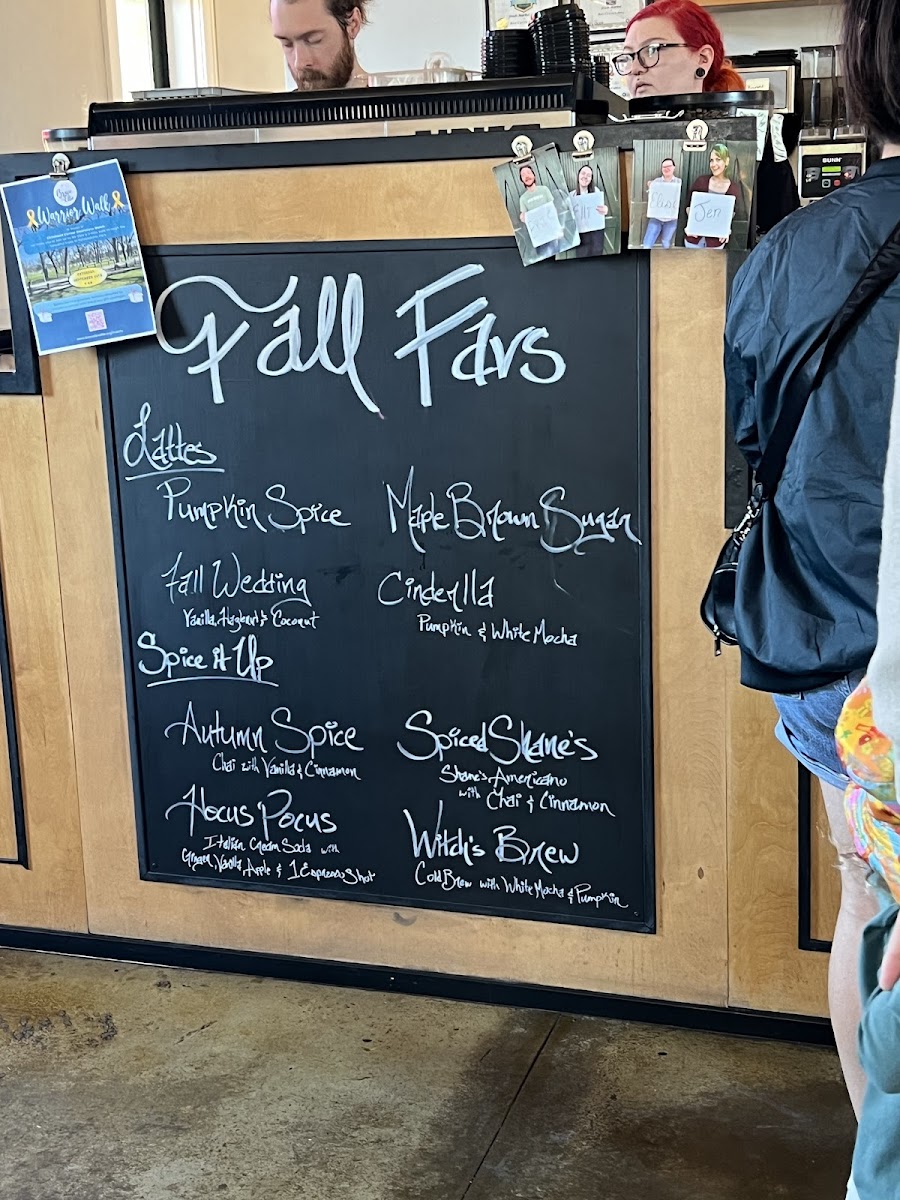 Warrior Walk
Elise
Jen
BUNN
Fall Favs
Lattes
Pumpkin Spice
Maple Brown Sugar
Fall Wedding
Vanilla, Hazelnut & Coconut
Cinderella
Pumpkin & White Mocha
Spice it Up
Autumn Spice
Chai with Vanilla & Cinnamon
Spiced Shane's
Shane's Americano
with Chai & Cinnamon
Hocus Pocus
Italian Cream Soda with
Ginger, Vanilla, Apple & 1 Espresso Shot
Witch's Brew
Cold Brew with White Mocha & Pumpkin